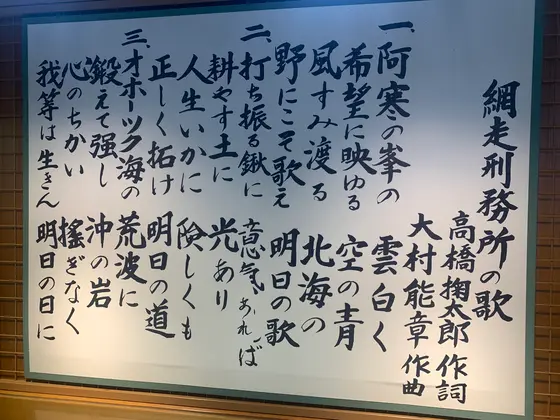 網走刑務所の歌
高橋掬太郎 作詞
大村能章 作曲
一、阿寒の峯の 雲白く
希望に映ゆる 空の青
風すみ渡る 北海の
野にこそ歌え 明日の歌
二、打ち振る鍬に 意気あれば
耕やす土に 光あり
人生いかに 険しくも
正しく拓け 明日の道
三、オホーツク海の 荒波に
鍛えて強し 沖の岩
心のちかい 搖ぎなく
我等は生きん 明日の日に